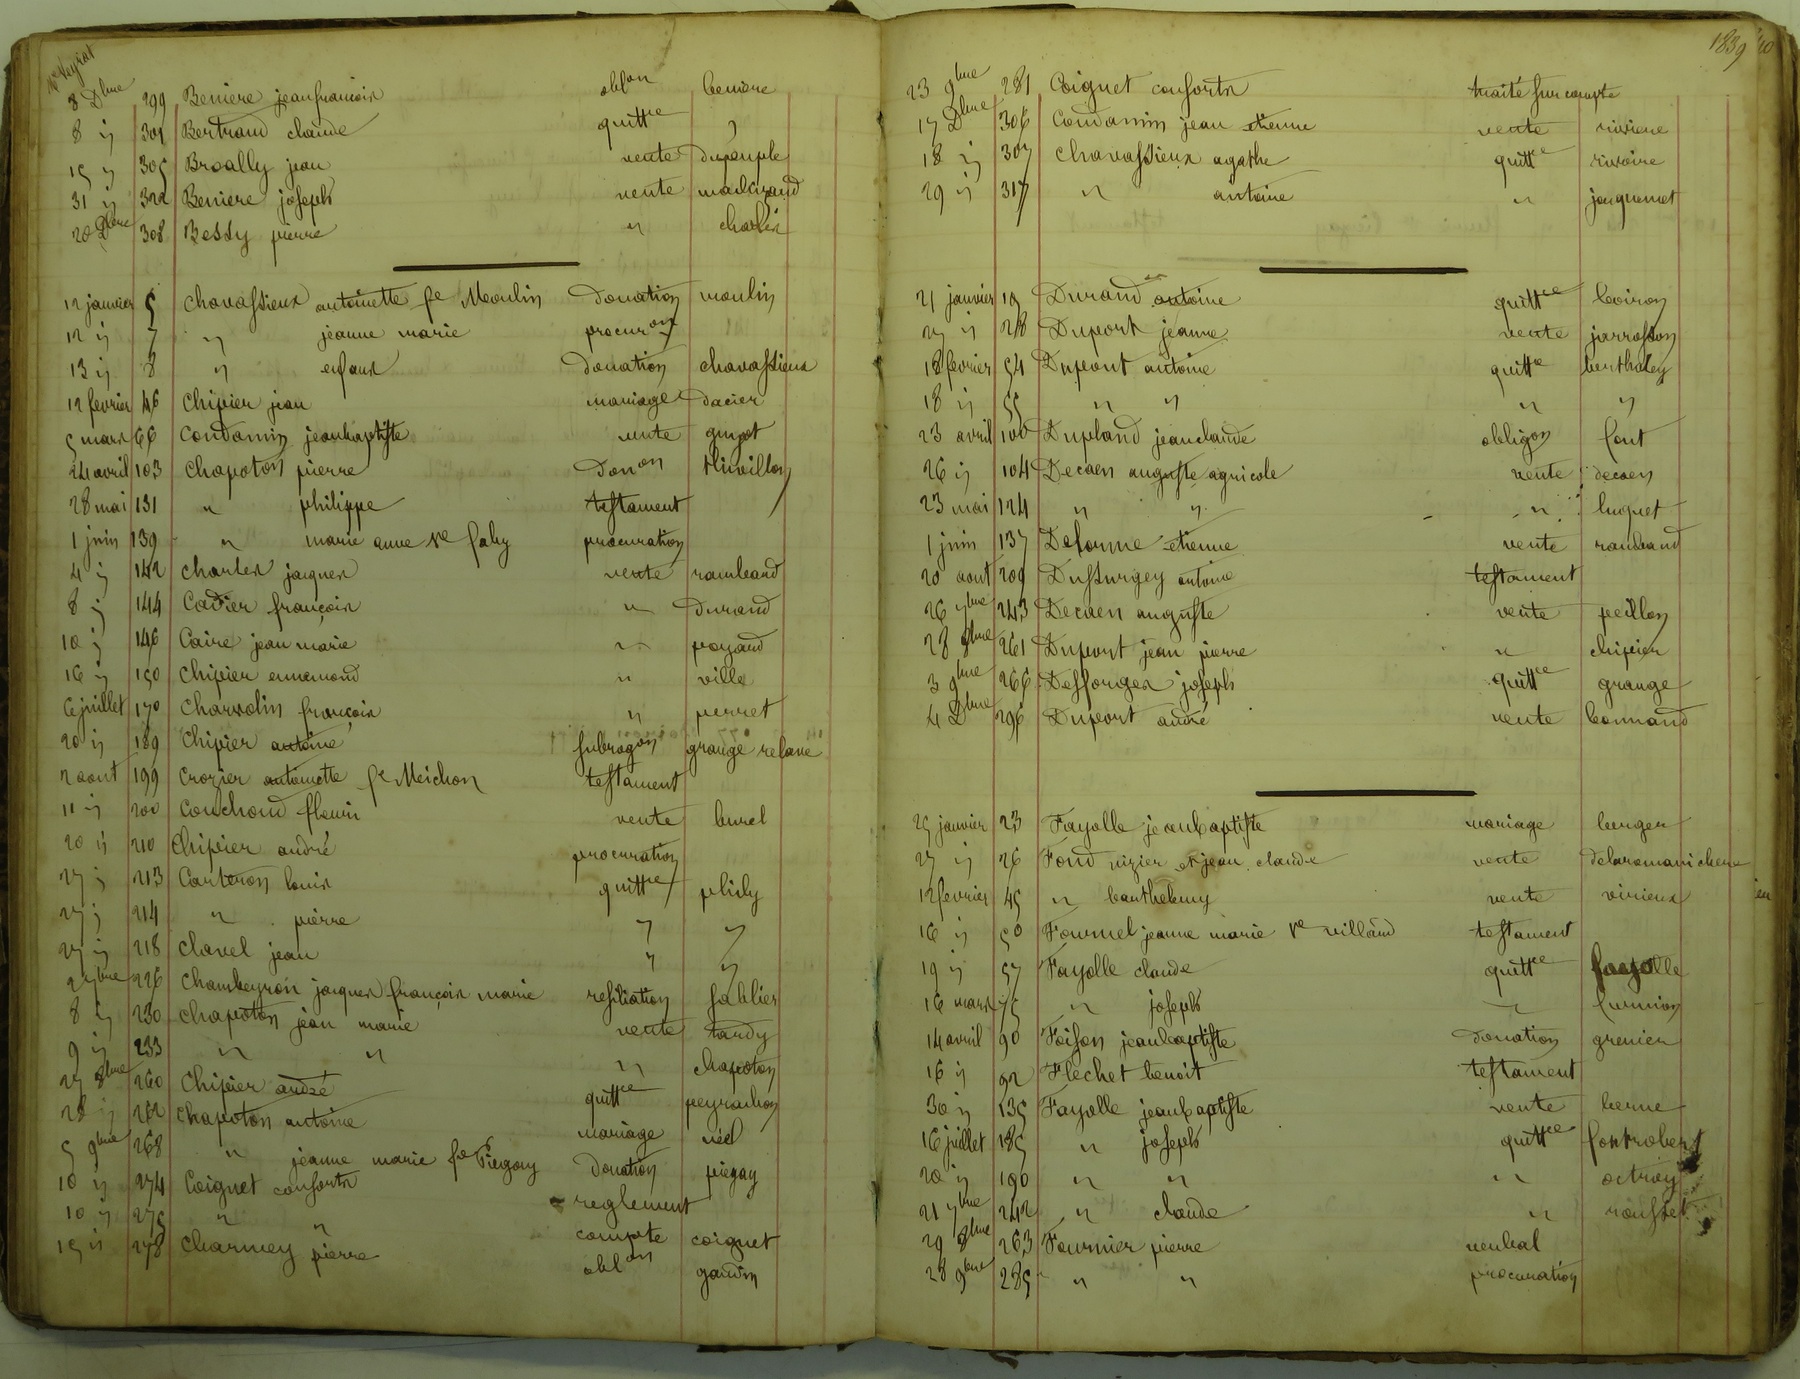 Me Veyrat
8 Dbre 299 Beniere jeanfrancois oblon beniere
8 ij 301 Bertrand claude quittce "
15 ij 305 Broally jean vente dupeuple
31 ij 322 Beniere joseph vente
20 Dbre 308 Bessy pierre " charlin
12 janvier 5 chavassieux antoinette fe Moulin Donation moulin
12 ij 7 " jeanne marie procuron
13 ij 8 " enfans Donation chavassieux
12 fevrier 46 chipier jean mariage dacier
5 mars 66 Condamin jeanbaptiste vente guyot
24 avril 103 chapoton pierre Donon thivillon
28 mai 131 " philippe testament
1 juin 139 " marie anne ve faby procuration
4 ij 142 charles jacques vente rambaud
8 ij 144 Cadier françois " Durand
10 ij 146 Caire jean marie " poyard
16 ij 150 chipier ennemond " ville
6 juillet 170 charvolin françois " perret
20 ij 189 chipier antoine subrogon grange
2 aout 199 crozier antoinette fe Meichon testament
11 ij 200 Couchoud fleuri vente burel
20 ij 210 chipier andré procuration
27 ij 213 Carteron louis quittce phily
27 ij 214 " pierre " "
27 ij 218 clavel jean " "
2 7bre 226 Chambeyron jacques françois marie resiliation sablier
8 ij 230 chapoton jean marie vente tardy
9 ij 233 " " " chapoton
27 8bre 260 chipier andré quittce peyrachon
28 ij 262 chapoton antoine mariage niel
5 9bre 268 " jeanne marie fe Piegay Donation piegay
10 ij 274 Coignet consorts reglement
10 ij 275 " " compte coignet
15 ij 278 charmey pierre oblon gaudin
1839
23 9bre 281 Coignet consorts traité sur compte
17 Dbre 306 Condamin jean etienne vente riviere
18 ij 307 chavassieux agathe quittce rivoire
29 ij 317 " antoine " jacquemet
21 janvier 19 Durand antoine quittce boiron
27 ij 28 Dupont jeanne vente jarrosson
18 fevrier 54 Dupont antoine quittce bertholey
18 ij 55 " " " "
23 avril 100 Dupland jeanclaude obligon font
26 ij 104 Decaen auguste agricole vente decaen
23 mai 124 " " " luquet
1 juin 137 Delorme etienne vente rambaud
20 aout 209 Dussurgey antoine testament
26 7bre 243 Decaen auguste vente peillon
28 8bre 261 Dupont jean pierre " chipier
3 9bre 266 Desforges joseph quittce grange
4 Dbre 296 Dupont andré vente bonnard
25 janvier 23 Fayolle jeanbaptiste mariage berger
27 ij 26 Fond nizier et jean claude vente delaromanichere
12 fevrier 45 " barthelemy vente virieux
16 ij 50 Fournel jeanne marie ve villard testament
19 ij 57 Fayolle claude quittce fayolle
16 mars 75 " joseph "
14 avril 90 Foison jeanbaptiste donation grenier
16 ij 92 Flechet benoit testament
30 ij 135 Fayolle jeanbaptiste vente berne
16 juillet 185 " joseph quittce fontrobert
20 ij 190 " " " octroy
21 7bre 242 " claude " rousset
29 8bre 263 Fournier pierre
28 9bre 285 " " procuration